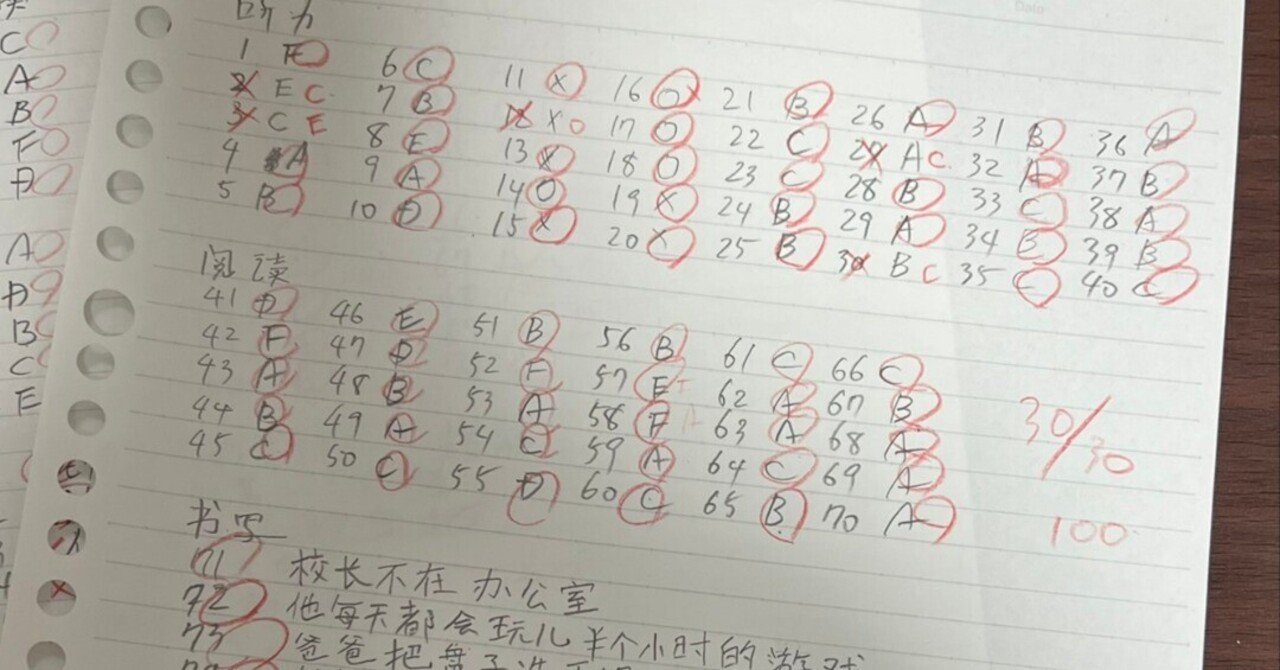 听力
1 F 6 C 11 X 16 O 21 B 26 A 31 B 36 A
2 E C 7 B 12 X O 17 O 22 C 27 A C 32 A 37 B
3 C E 8 E 13 X 18 O 23 C 28 B 33 C 38 A
4 A 9 A 14 O 19 X 24 B 29 A 34 B 39 B
5 B 10 D 15 X 20 X 25 B 30 B C 35 C 40 C
阅读
41 D 46 E 51 B 56 B 61 C 66 C
42 F 47 D 52 F 57 E 62 A 67 B
43 A 48 B 53 A 58 F 63 A 68 A
44 B 49 A 54 C 59 A 64 C 69 A
45 C 50 C 55 D 60 C 65 B 70 A
30/30
100
书写
71 校长不在办公室
72 他每天都会玩儿半个小时的游戏
73 爸爸把盘子
C
A
B
F
D
A
D
B
C
E